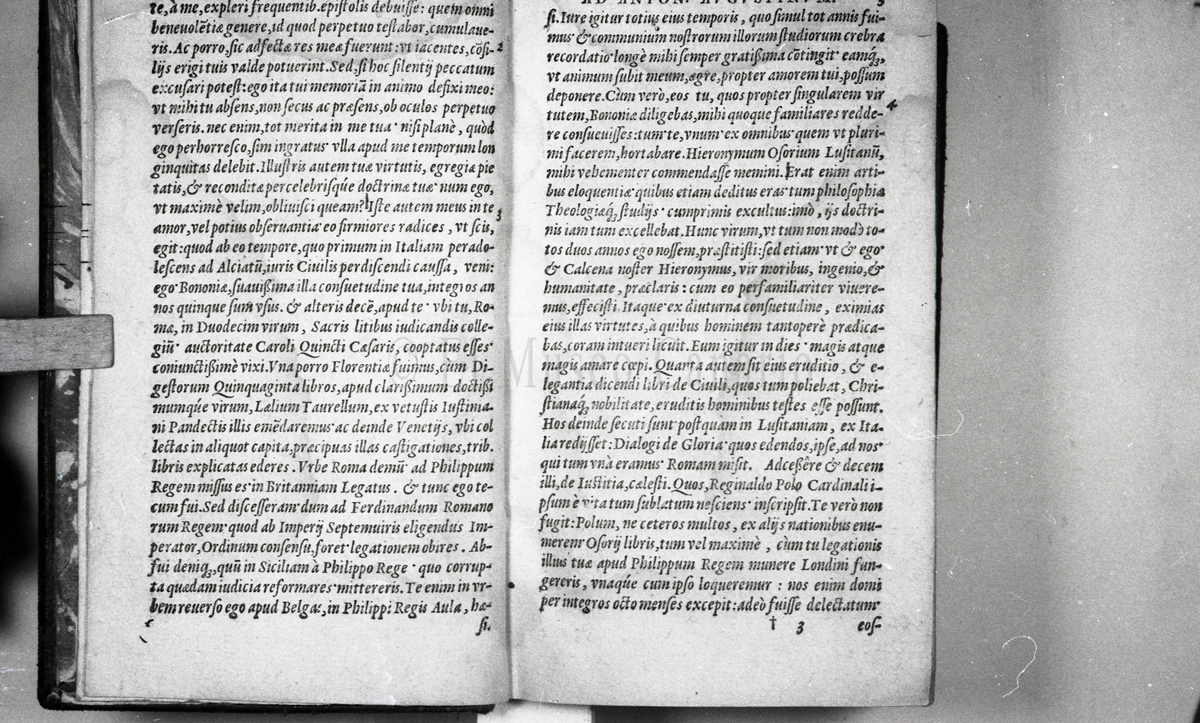 te, à me, expleri frequentib. epistolis debuisse: quem omni
benevolẽtiæ genere, id quod perpetuo testabor, cumulaue-
ris. Ac porro, sic adfectæ res meæ fuerunt: vt iacentes, cõsi-
lijs erigi tuis valde potuerint. Sed, si hoc silentij peccatum
excusari potest: ego ita tui memoriã in animo defixi meo:
vt mihi tu absens, non secus ac præsens, ob oculos perpetuo
verseris. nec enim, tot merita in me tua· nisi planè, quòd
ego perhorresco, sim ingratus· vlla apud me temporum lon
ginquitas delebit. Illustris autem tuæ virtutis, egregiæ pie
tatis, & reconditæ percelebrisq́ue doctrinæ tuæ· num ego,
vt maximè velim, obliuisci queam? Iste autem meus in te
amor, vel potius obseruantia· eo firmiores radices, vt scis,
egit: quod ab eo tempore, quo primum in Italiam perado-
lescens ad Alciatũ, iuris Ciuilis perdiscendi caussa, veni:
ego· Bononiæ, suauissima illa consuetudine tua, integros an
nos quinque sum vsus. & alteris decẽ, apud te· vbi tu, Ro-
mæ, in Duodecim virum, Sacris litibus iudicandis colle-
giũ· auctoritate Caroli Quincti Cæsaris, cooptatus esses·
coniunctissimè vixi. Vna porro Florentiæ fuimus, cùm Di-
gestorum Quinquaginta libros, apud clarissimum· doctissi
mumq́ue virum, Lælium Taurellum, ex vetustis Iustinia-
ni Pandectis illis emẽdaremus· ac deinde Venetijs, vbi col
lectas in aliquot capita, præcipuas illas castigationes, trib.
libris explicatas ederes. Vrbe Roma demũ· ad Philippum
Regem missus es· in Britanniam Legatus. & tunc ego te-
cum fui. Sed discesseram· dum ad Ferdinandum Romano
rum Regem· quod ab Imperij Septemuiris eligendus Im-
perator, Ordinum consensu, foret· legationem obires. Ab-
fui deniq;, quũ in Siciliam à Philippo Rege· quo corrup-
ta quædam iudicia reformares· mittereris. Te enim in vr-
bem reuerso ego apud Belgas, in Philippi Regis Aula, hæ-
si.
AD ANTON. AVGVSTINVM. 3
si. Iure igitur totius eius temporis, quo simul tot annis fui-
mus· & communium nostrorum illorum studiorum crebra
recordatio· longè mihi semper gratissima cõtingit· eamq́;,
vt animum subit meum, ægre, propter amorem tui, possum
deponere. Cùm verò, eos tu, quos propter singularem vir
tutem, Bononiæ diligebas, mihi quoque familiares redde-
re consueuisses: tum· te, vnum· ex omnibus· quem vt pluri-
mi facerem, hortabare. Hieronymum Osorium Lusitanũ,
mihi vehementer commendasse memini. Erat enim arti-
bus eloquentiæ· quibus etiam deditus eras· tum philosophiæ
Theologiæq́; studijs· cumprimis excultus: imò, ijs doctri-
nis iam tum excellebat. Hunc virum, vt tum non modò to-
tos duos annos ego nossem, præstitisti: sed etiam· vt & ego·
& Calcena noster Hieronymus, vir moribus, ingenio, &
humanitate, præclaris: cum eo perfamiliariter viuere-
mus, effecisti. Itaque· ex diuturna consuetudine, eximias
eius illas virtutes, à quibus hominem tantoperè prædica-
bas, coram intueri licuit. Eum igitur in dies· magis atque
magis amare cœpi. Quanta autem sit eius eruditio, & e-
legantia dicendi· libri de Ciuili, quos tum poliebat, Chri-
stianaq́; nobilitate, eruditis hominibus testes esse possunt.
Hos deinde secuti sunt· postquam in Lusitaniam, ex Ita-
lia redijsset: Dialogi de Gloria· quos edendos, ipse, ad nos·
qui tum vnà eramus· Romam misit. Adcessêre & decem
illi, de Iustitia, cælesti. Quos, Reginaldo Polo Cardinali· i-
psum è vita tum sublatum nesciens· inscripsit. Te verò non
fugit: Polum, ne ceteros multos, ex alijs nationibus enu-
merem· Osorij libris, tum vel maximè, cùm tu legationis
illius tuæ apud Philippum Regem munere Londini fun-
gereris, vnaq́ue cum ipso loqueremur: nos enim domi
per integros octo menses excepit: adeò fuisse delectatum·
† 3 eos-